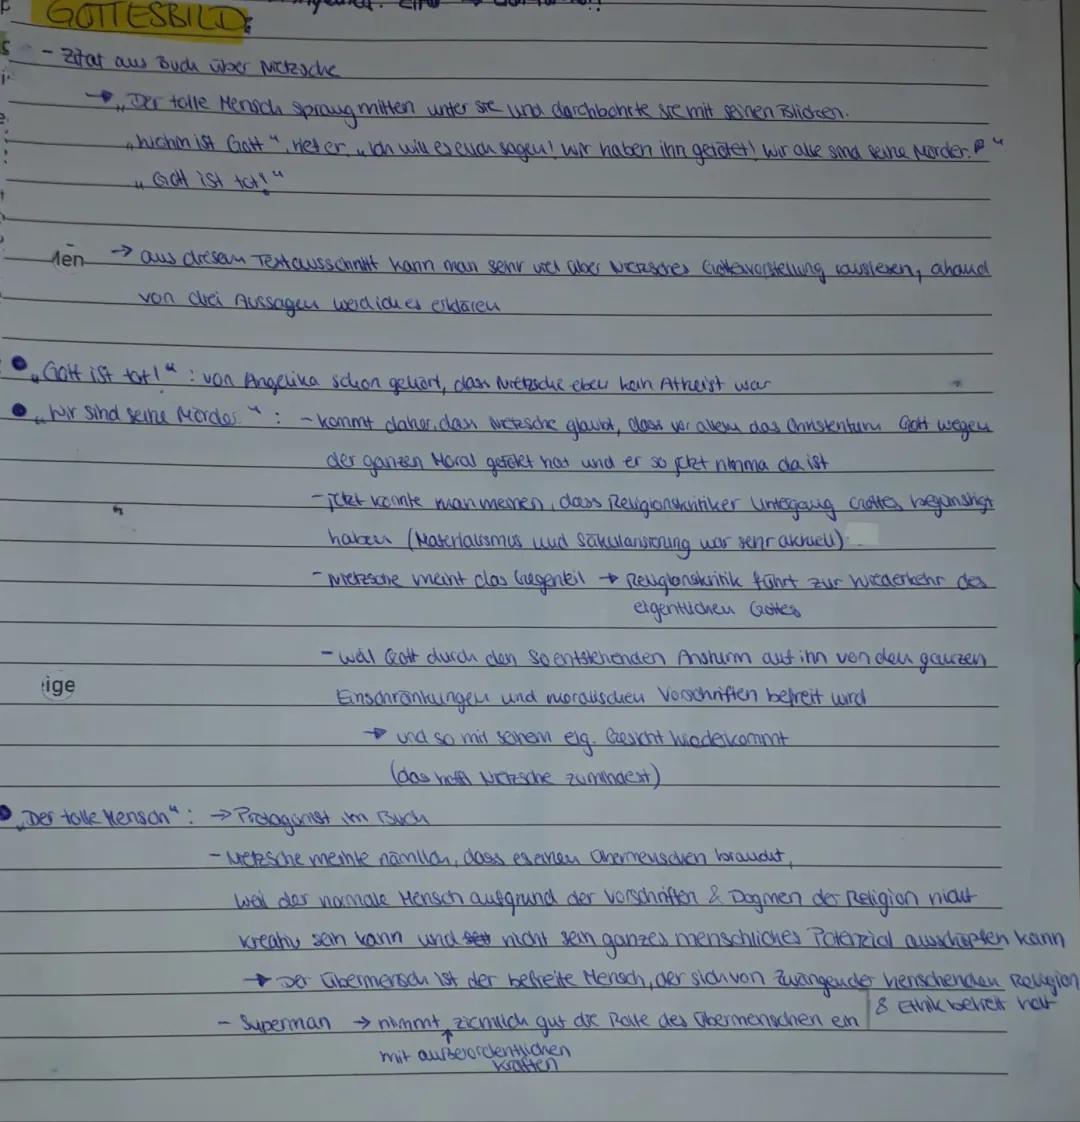 GOTTESBILD:
- Zitat aus Buch über Nietzsche
→ „Der tolle Mensch sprang mitten unter sie und durchbohrte sie mit seinen Blicken.
„Wohin ist Gott“, rief er, „ich will es euch sagen! Wir haben ihn getötet! Wir alle sind seine Mörder.“
„Gott ist tot!“
len
→ aus diesem Textausschnitt kann man sehr viel über Nietzsches Gottesvorstellung rauslesen, ahand
von drei Aussagen werd ich es erklären
• „Gott ist tot!“ : von Angelika schon gehört, dass Nietzsche eben kein Atheist war
• „Wir sind seine Mörder“ : - kommt daher, dass Nietzsche glaubt, dass vor allem das Christentum Gott wegen
der ganzen Moral getötet hat und er so jetzt nimma da ist
- jetzt könnte man meinen, dass Religionskritiker Untergang Gottes begünstigt
haben (Materialismus und Säkularisierung war sehr aktuell)
- Nietzsche meint das Gegenteil → Religionskritik führt zur Wiederkehr des
eigentlichen Gottes
- weil Gott durch den so entstehenden Ansturm auf ihn von den ganzen
eige
Einschränkungen und moralischen Vorschriften befreit wird
→ und so mit seinem eig. Gesicht wiederkommt
(das hofft Nietzsche zumindest)
• „Der tolle Mensch“ : → Protagonist im Buch
- Nietzsche meinte nämlich, dass es einen Übermenschen braucht,
weil der normale Mensch aufgrund der Vorschriften & Dogmen der Religion nicht
kreativ sein kann und nicht sein ganzes menschliches Potenzial ausschöpfen kann
→ Der Übermensch ist der befreite Mensch, der sich von Zwängen der herrschenden Religion
& Ethik befreit hat
- Superman → nimmt ziemlich gut die Rolle des Übermenschen ein
mit außerordentlichen
Kräften